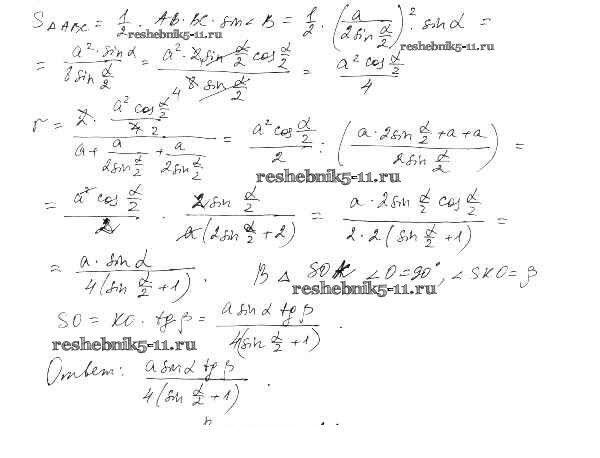 S△ABC = 1/2 · AB · BC · sin∠B = 1/2 · (a/(2sin α/2))² · sinα =
reshebnik5-11.ru
reshebnik5-11.ru
= (a² · sinα)/(8 sin α/2) = (a² · 2 sin α/2 cos α/2)/(8 sin α/2) = (a² cos α/2)/4
4
r = (2 · (a² cos α/2)/(4 2))/(a + a/(2sin α/2) + a/(2sin α/2)) = (a² cos α/2)/2 : ((a · 2sin α/2 + a + a)/(2sin α/2)) =
reshebnik5-11.ru
= (a² cos α/2)/2 · (2 sin α/2)/(a(2sin α/2 + 2)) = (a · 2sin α/2 cos α/2)/(2 · 2(sin α/2 + 1)) =
= (a · sinα)/(4(sin α/2 + 1)). В △ SOK ∠O = 90°, ∠SKO = β
reshebnik5-11.ru
SO = KO · tgβ = (a sinα tgβ)/(4(sin α/2 + 1)).
reshebnik5-11.ru
Ответ: (a sinα tgβ)/(4(sin α/2 + 1)).